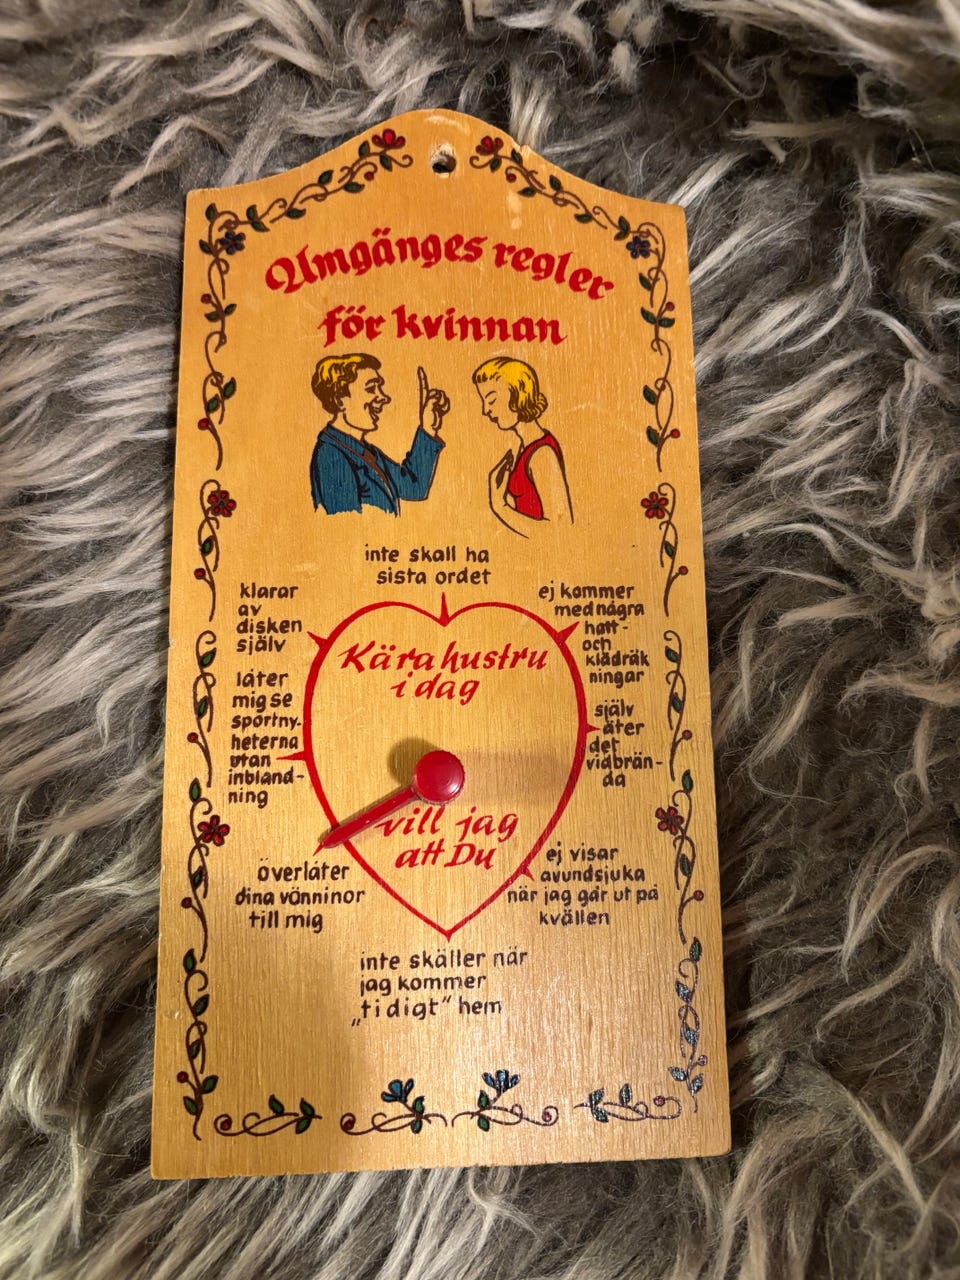 Umgänges regler
för kvinnan
inte skall ha
sista ordet
klarar
av
disken
själv
ej kommer
med några
hatt-
och
klädräk
ningar
Kära hustru
i dag
låter
mig se
sportny-
heterna
utan
inbland-
ning
själv
äter
det
vidbrän-
da
vill jag
att Du
överlåter
dina vönninor
till mig
ej visar
avundsjuka
när jag går ut på
kvällen
inte skäller när
jag kommer
„tidigt" hem